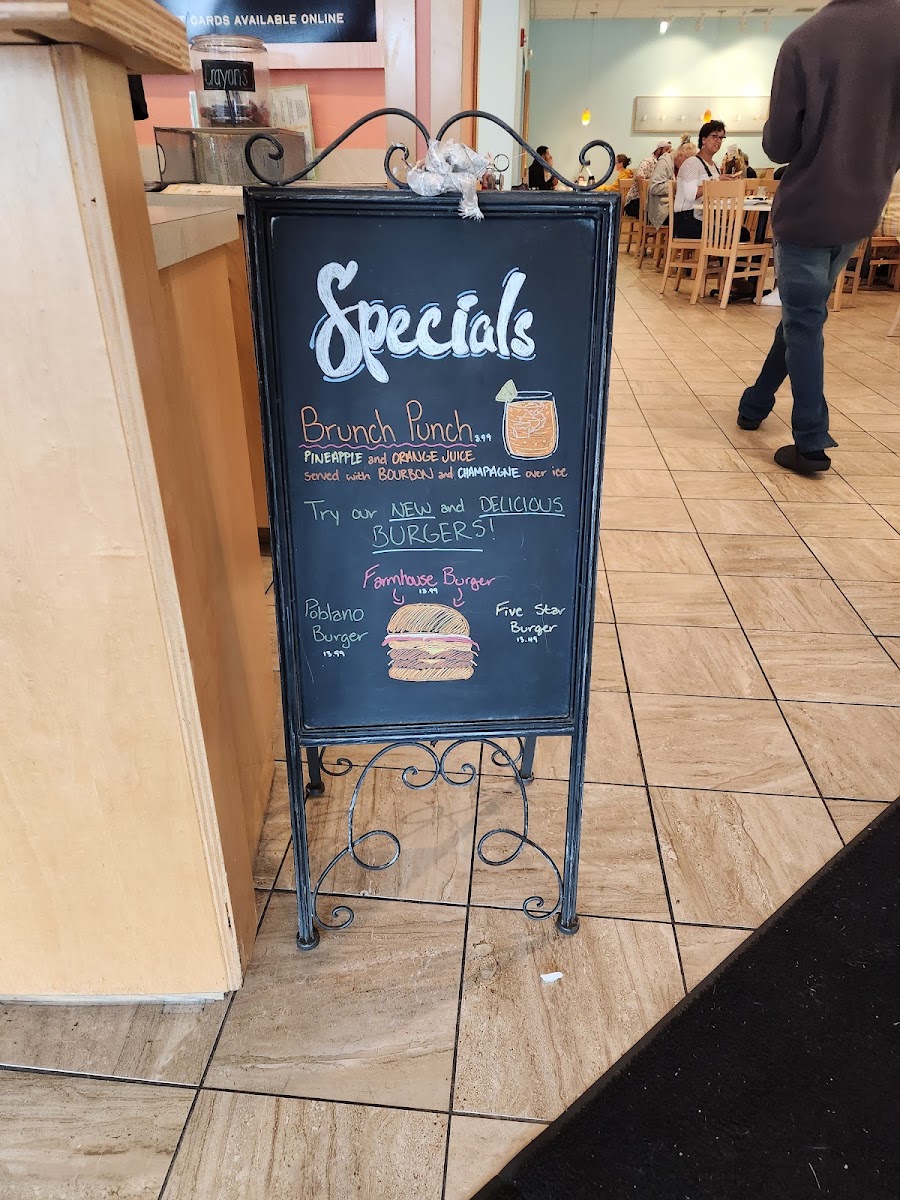 CARDS AVAILABLE ONLINE
crayons
Specials
Brunch Punch 3.99
PINEAPPLE and ORANGE JUICE
served with BOURBON and CHAMPAGNE over ice
Try our NEW and DELICIOUS
BURGERS!
Farmhouse Burger
13.99
Poblano
Burger
13.99
Five Star
Burger
13.49